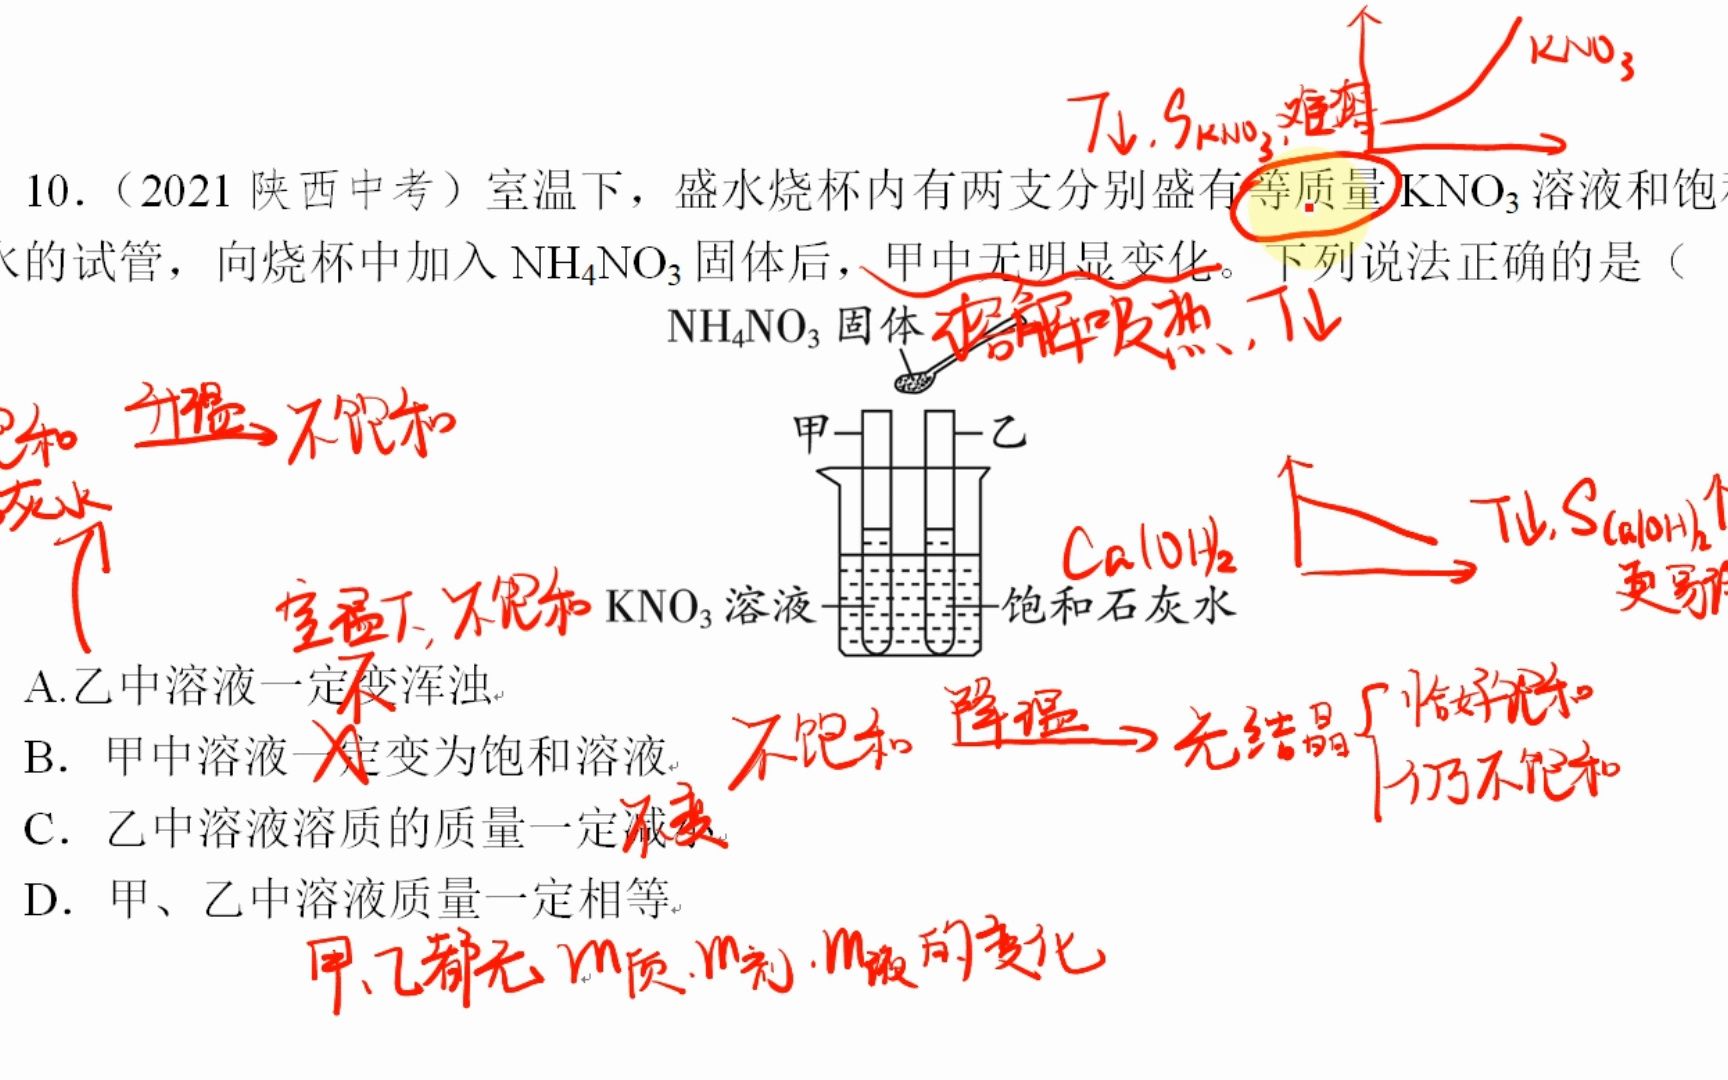 KNO3
T↓.SKNO3.难溶
10.（2021 陕西中考）室温下，盛水烧杯内有两支分别盛有等质量 KNO3 溶液和饱和
水的试管，向烧杯中加入 NH4NO3 固体后，甲中无明显变化。下列说法正确的是（
NH4NO3 固体
溶解吸热,T↓
和 升温 不饱和
灰水
甲 乙
Ca(OH)2
T↓.SCa(OH)2↑
更易
室温下,不饱和
KNO3 溶液 饱和石灰水
A.乙中溶液一定变浑浊
不
B．甲中溶液一定变为饱和溶液
不饱和 降温 无结晶
恰好饱和
仍不饱和
C．乙中溶液溶质的质量一定减小
不变
D．甲、乙中溶液质量一定相等
甲、乙都无 m质.m剂.m液的变化